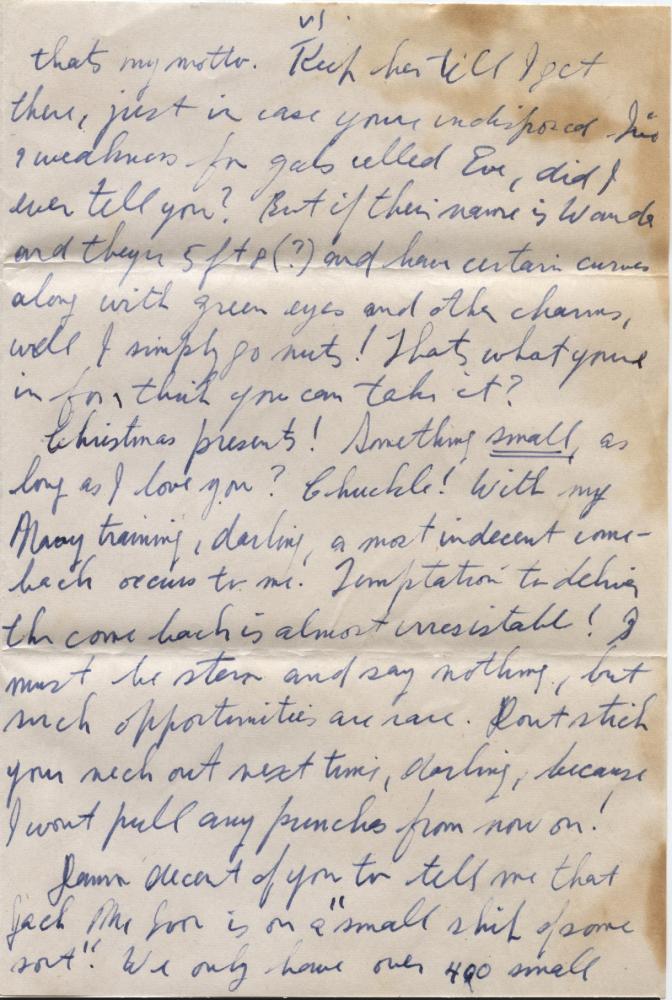 vi.
thats my motto. Keep her till I get
there, just in case youre indisposed. Ive
a weakness for gals called Eve, did I
ever tell you? But if their name is Wanda
and theyre 5 ft 8 (?) and have certain curves
along with green eyes and other charms,
well I simply go nuts! Thats what youre
in for, think you can take it?
Christmas presents! Something small, as
long as I love you? Chuckle! With my
Navy training, darling, a most indecent come-
back occurs to me. Temptation to deliver
the come back is almost irresistable! I
must be stern and say nothing, but
such opportunities are rare. Dont stick
your neck out next time, darling, because
I wont pull any punches from now on!
Damn decent of you to tell me that
Jack is on a "small ship of some
sort". We only have over 400 small